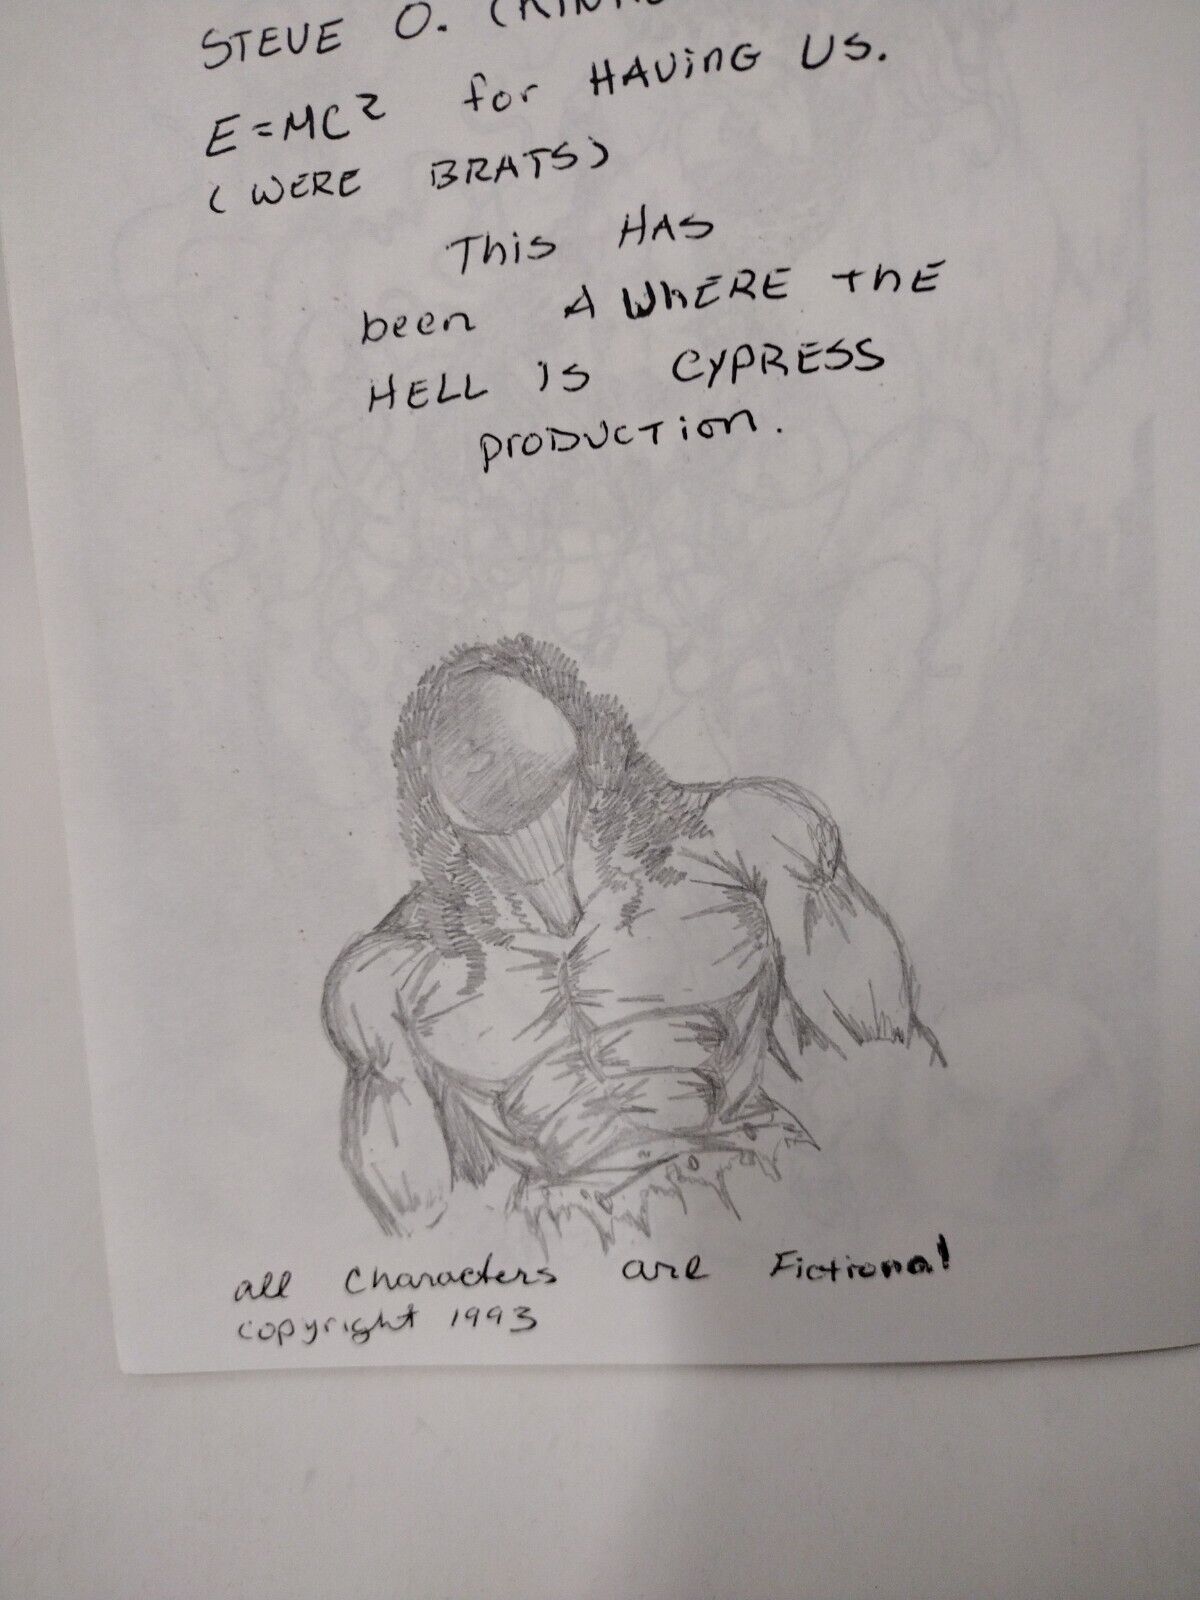 STEVE O.
E=MC² for HAVING US.
(WERE BRATS)
This HAS
been A WhERE ThE
HELL iS CYPRESS
PRODUCTION.
all Characters are Fictional
copyright 1993